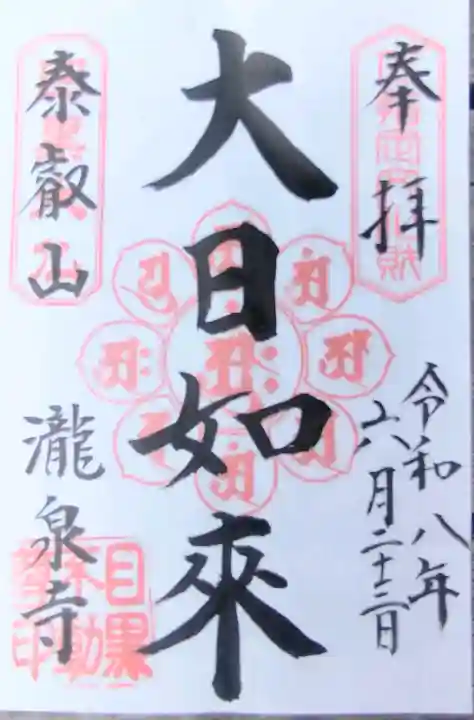 奉拝
令和八年
六月二十三日
大日如來
泰叡山
瀧泉寺
目黒
不動